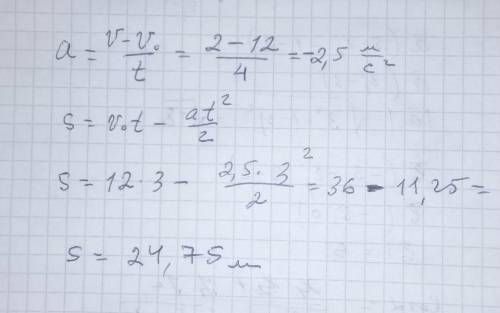 a = (v - v₀)/t = (2 - 12)/4 = -2,5 м/с²
s = v₀t - at²/2
s = 12 · 3 - (2,5 · 3²)/2 = 36 - 11,25 =
s = 24,75 м